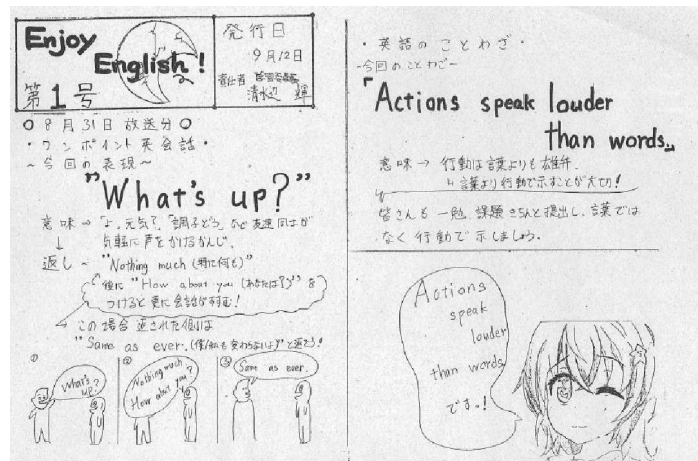 Enjoy
English!
第1号
発行日
9月12日
責任者
○8月31日放送分○
・ワンポイント英会話・
～今回の表現～
"What's up?"
意味→「よ、元気?」「調子どう」など友達同士が
気軽に声をかけるかんじ。
返し～"Nothing much (特に何も)"
後に"How about you (あなたは?)"を
つけると更に会話が
この場合返された側は
"Same as ever. (僕/私も変わらないよ)"と返そう!
①
What's up?
②
Nothing much
How about you?
③
Same as ever.
・英語のことわざ・
-今回のことわざ-
「Actions speak louder
than words.」
意味→行動は言葉よりも雄弁.
↳言葉より行動で示すことが大切!
皆さんも一勉、課題きちんと提出し、言葉では
なく行動で示しましょう。
Actions
speak
louder
than words
ですっ!